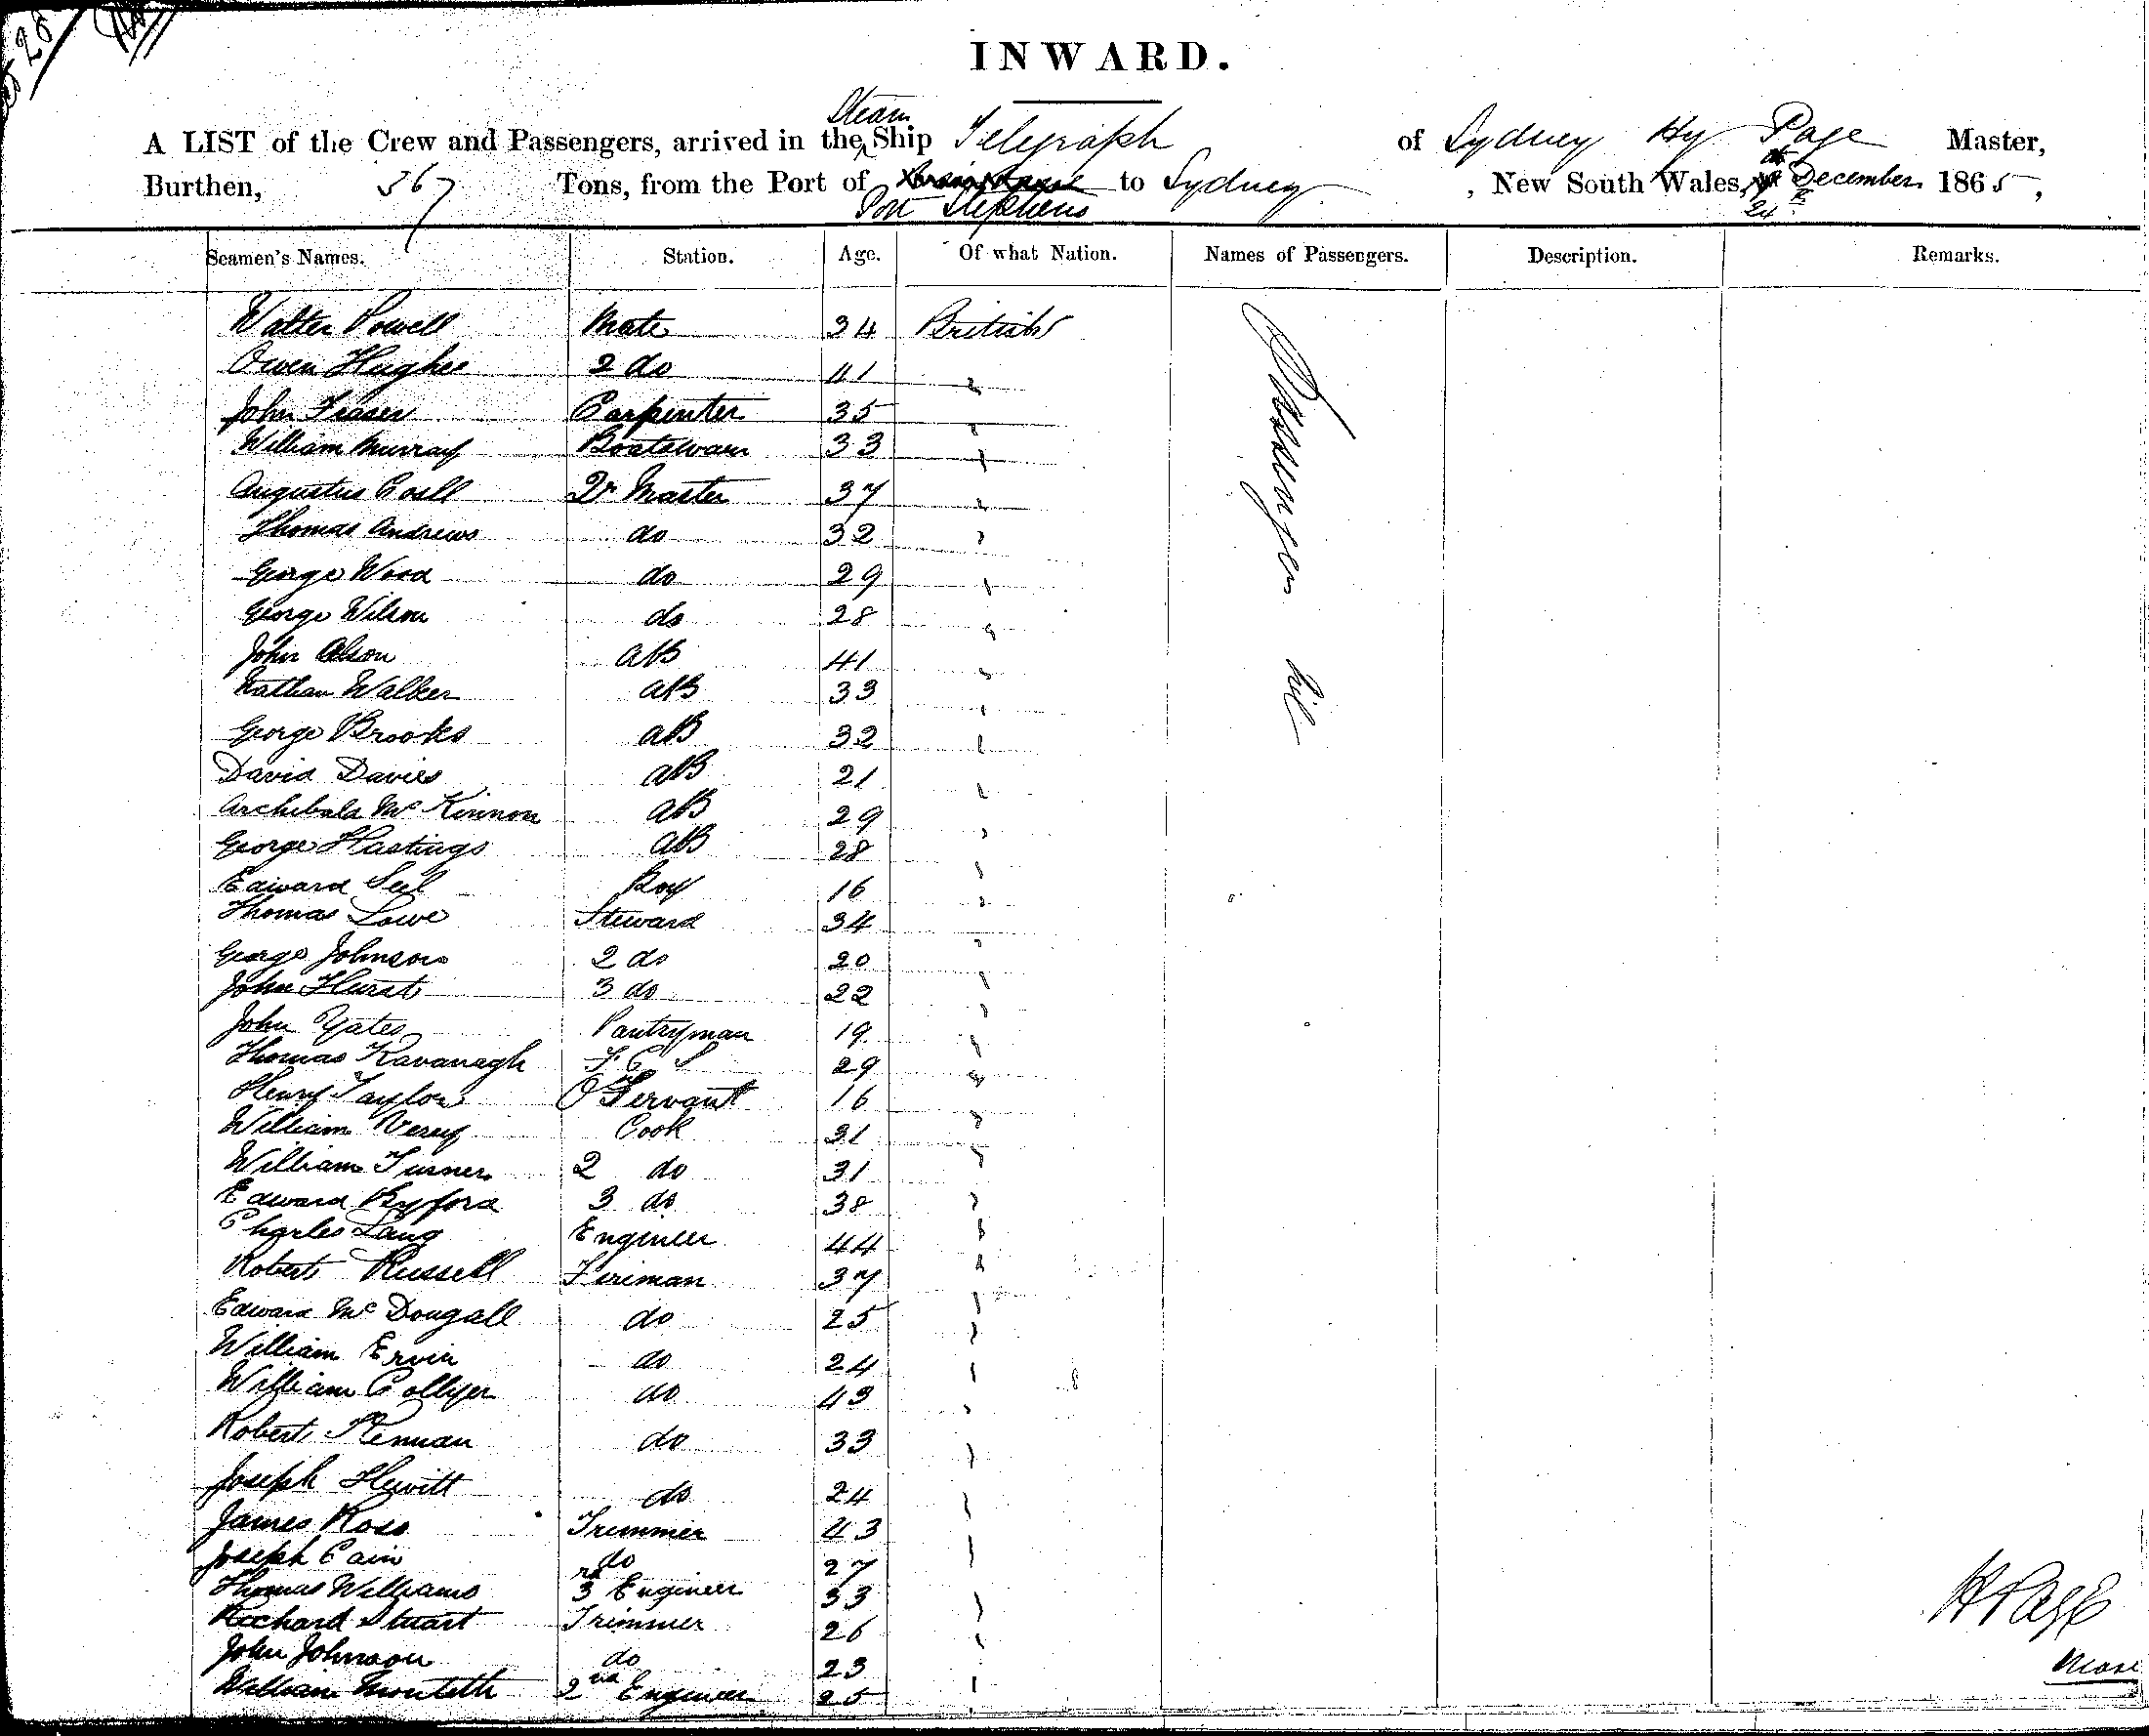 INWARD.
A LIST of the Crew and Passengers, arrived in the Steam Ship Telegraph of Sydney Hy Page Master,
Burthen, 567 Tons, from the Port of Port Stephens to Sydney, New South Wales, 24 December 1865,
Seamen's Names. Station. Age. Of what Nation. Names of Passengers. Description. Remarks.
Walter Powell Mate 34 British
Owen Hughes 2 do 41 "
John Fraser Carpenter 35 "
William Murray Boatswain 33 "
Augustus Coell Qr Master 37 "
Thomas Andrews do 32 "
George Wood do 29 "
George Wilson do 28 "
John Olson AB 41 "
Nathan Walker AB 33 "
George Brooks AB 32 "
David Davies AB 21 "
Archibald McKinnon AB 29 "
George Hastings AB 28 "
Edward Seel Boy 16 "
Thomas Lowe Steward 34 "
George Johnson 2 do 20 "
John Hurst 3 do 22 "
John Yates Pantryman 19 "
Thomas Kavanagh F C S 29 "
Henry Taylor O Servant 16 "
William Verey Cook 31 "
William Turner 2 do 31 "
Edward Byford 3 do 38 "
Charles Lang Engineer 44 "
Robert Russell Fireman 37 "
Edward McDougall do 25 "
William Ervin do 24 "
William Collyer do 43 "
Robert do 33 "
Joseph Hewitt do 24 "
James Ross Trimmer 43 "
Joseph Cain do 27 "
Thomas Williams 3rd Engineer 33 "
Richard Stuart Trimmer 26 "
John Johnson do 23 "
William Monteith 2nd Engineer 25 "
Passengers nil
H Page